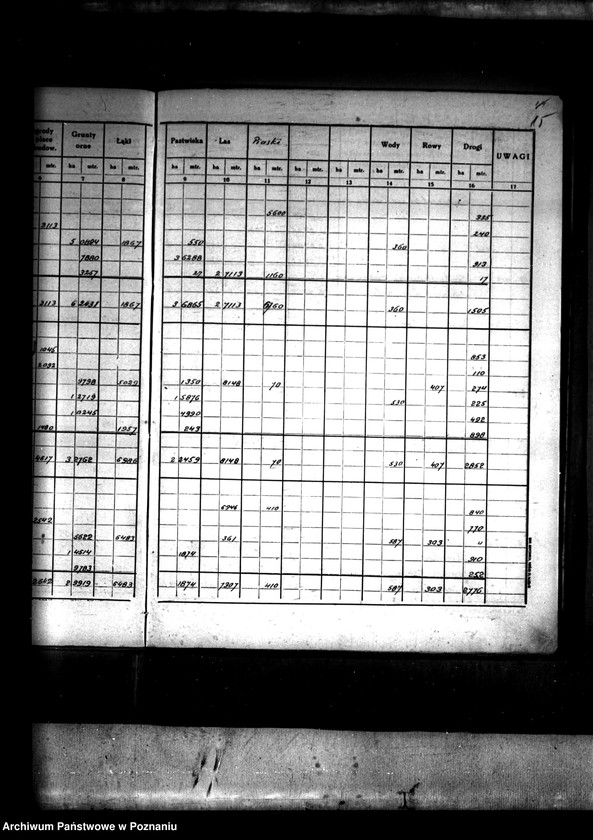 15
Grunty orne Łąki Pastwiska Las Piaski Wody Rowy Drogi UWAGI
mtr. ha mtr. ha mtr. ha mtr. ha mtr. ha mtr. ha mtr. ha mtr. ha mtr. ha mtr. ha mtr.
6 7 8 9 10 11 12 13 14 15 16 17
5600 325
3113 240
5 0894 1867 550 360
7880 3 6288 913
3257 27 2 7113 1160 17
3113 6 2031 1867 3 6865 2 7113 360 1505
1045 853
2092 110
9798 5029 1350 8148 70 407 274
1 2719 1 5876 530 225
1 0245 4990 492
1480 1957 243 898
4617 3 2762 6986 2 2459 8148 70 530 407 2852
6946 410 840
2542 770
5622 6483 361 587 303 "
1 4514 1874 910
9783 252
2542 2 9919 6483 1874 7307 410 587 303 2776
Archiwum Państwowe w Poznaniu